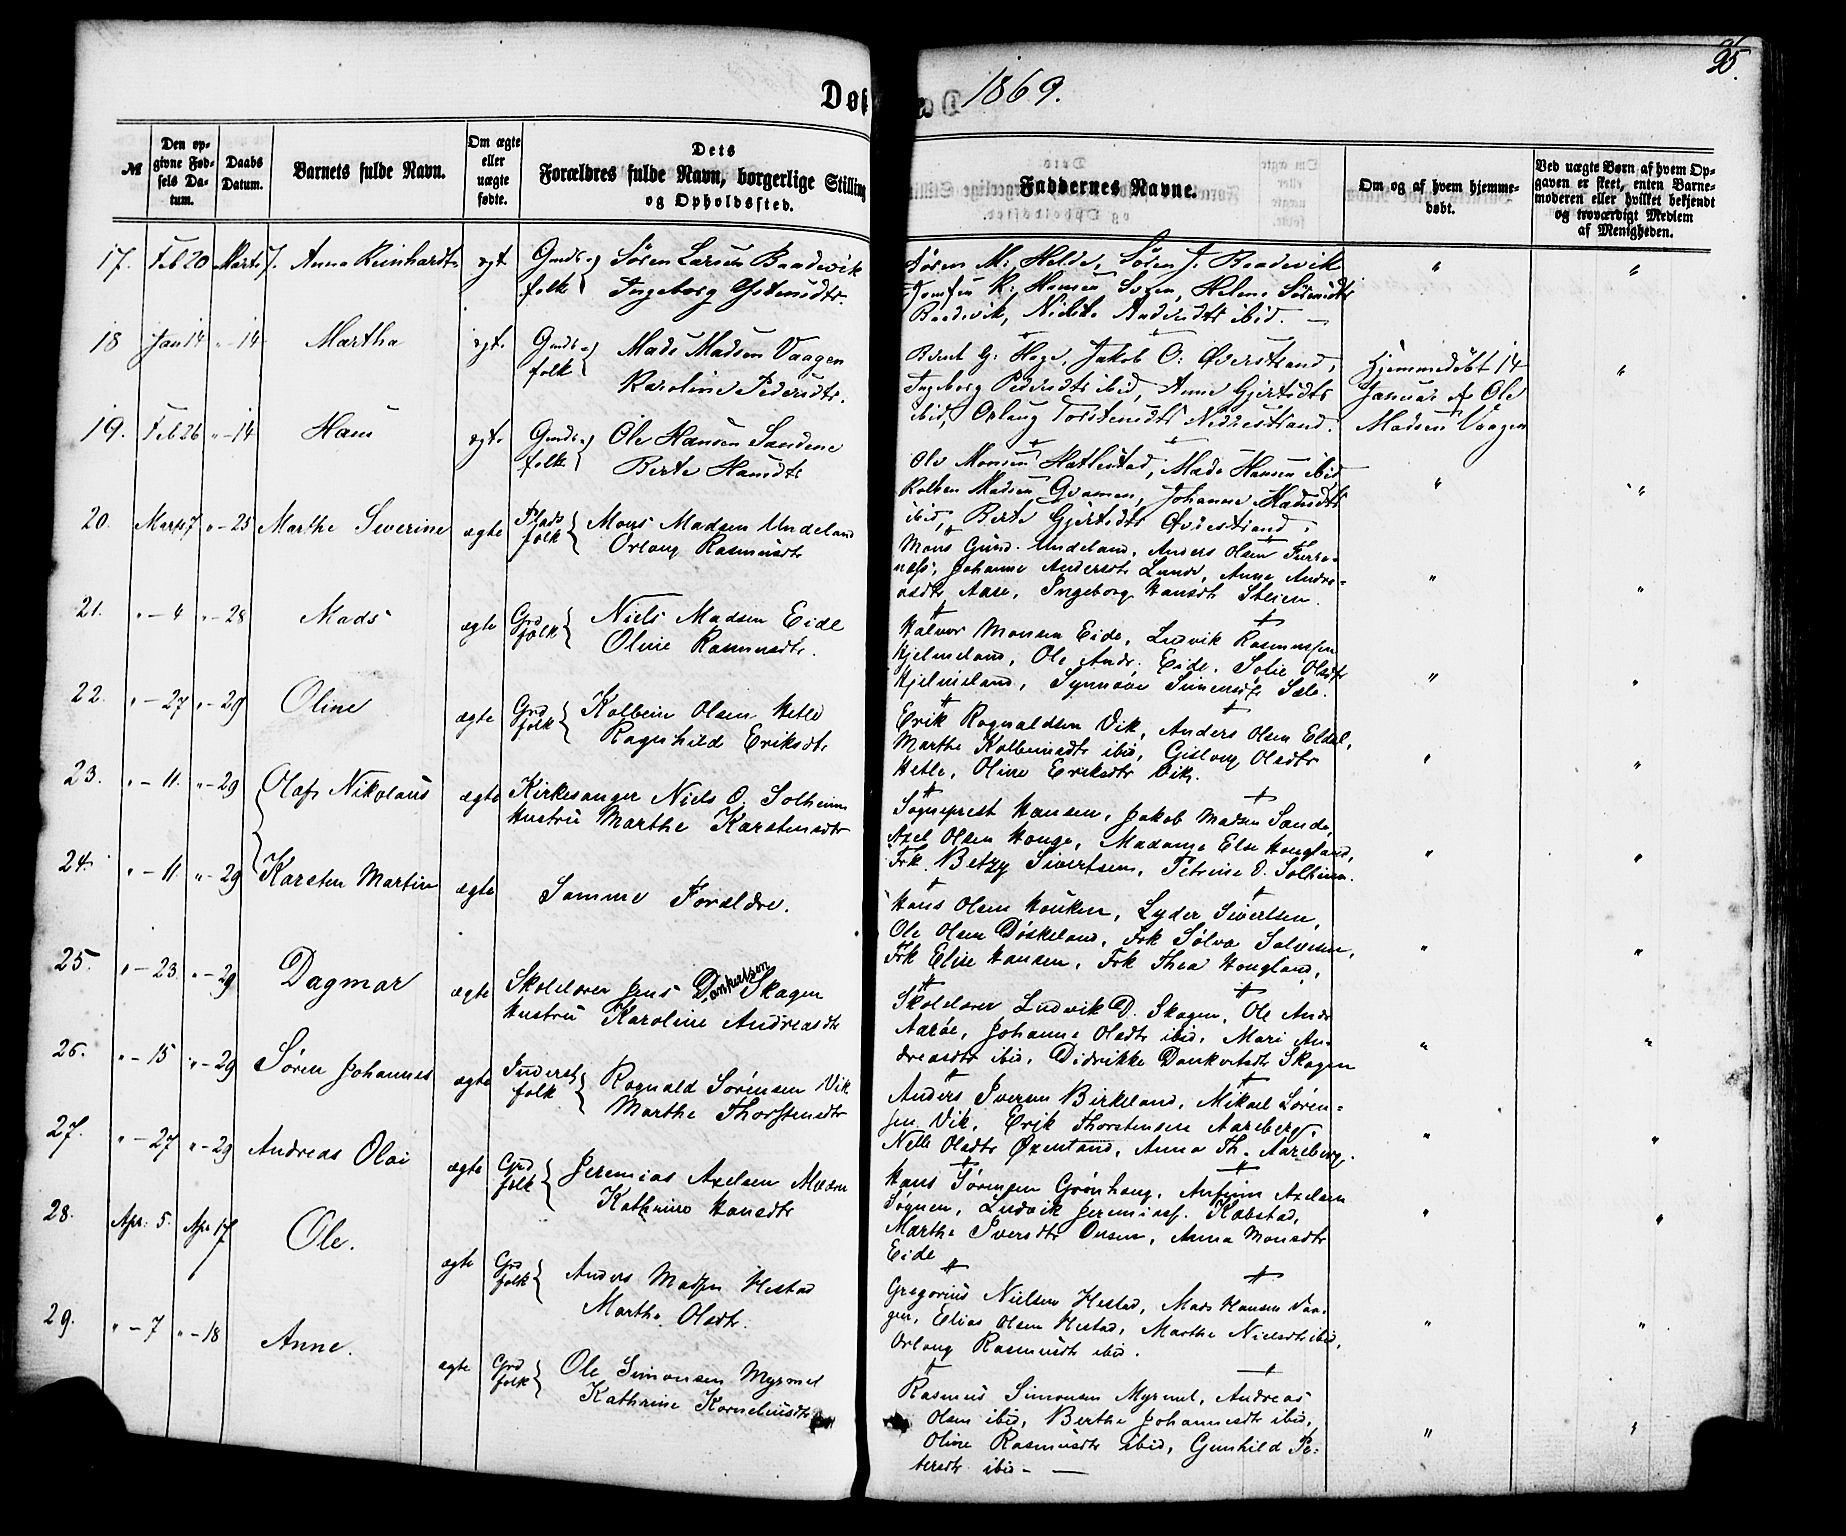 95.
Døbte 1869.
№
Den opgivne Fødsels Datum.
Daabs Datum.
Barnets fulde Navn.
Om ægte eller uægte fødte.
Dets Forældres fulde Navn, borgerlige Stilling og Opholdssted.
Faddernes Navne.
Om og af hvem hjemmedøbt.
Ved uægte Børn af hvem Opgaven er skeet, enten Barnemoderen eller hvilket bekjendt og troværdigt Medlem af Menigheden.
17. Feb 20 Marts 7. Anna Reinhardte egt. Gmds-folk Søren Larsen Baadevik
Ingeborg Ystensdtr.
Søren M: Helde, Søren J. Baadevik
K: Hansen Helene Sørensdtr
Baadevik, Andersdtr ibid. —
18 Jan 14 " - 14 Martha egt. Gmds-folk Mads Madsen Vaagen
Karoline Pedersdtr.
Bernt G: Hage, Jakob O: Øverstrand,
Ingeborg Pedersdtr ibid, Anne Gjertsdtr
ibid, Orlaug Torstensdtr Nedrestrand.
Hjemmedøbt 14
Januar af Ole
Madsen Vaagen
19. Feb 26 " - 14 Hans egt. Gmds-folk Ole Hansen Sandene
Berte Hansdtr
Ole Monsen Hatlestad, Mads Hansen ibid
Kolben Madsen Qvamen, Johanne Hansdtr
ibid, Berte Gjertsdtr Øvrestrand.
20. Marts 7 " - 25 Marthe Severine ægte Plads folk Mons Madsen Undeland
Orlaug Rasmusdtr
Mons Gund. Undeland, Anders Olsen Furre-
næs, Johanne Andersdtr Lunde, Anne Andre-
asdtr Aase, Ingeborg Hansdtr Steien.
21. " - 4 " - 28 Mads ægte Grd folk Niels Madsen Eide
Oline Rasmusdtr.
Halvor Monsen Eide, Ludvik Rasmussen
Hjelmeland, Ole Andr. Eide, Sofie Olsdtr
Hjelmeland, Synnøve Simensdtr Sæle.
22. " - 27 " - 29 Oline ægte Grd folk Kolbein Olsen Hetle
Ragnhild Eriksdtr
Erik Rognaldsen Vik, Anders Olsen Eldal,
Marthe Kolbensdtr ibid, Gislaug Olsdtr
Hetle, Oline Eriksdtr Vik.
23. " - 11. " - 29 Olaf Nikolaus ægte Kirkesanger Niels O. Solheim
Hustru Marthe Karstensdtr
Sogneprest Hansen, Jakob Madsen Sande,
Axel Olsen Hauge, Madame Else Hougland,
Frk. Betzy Sivertsen, Petrine O. Solheim.
24. " - 11 " - 29 Karsten Martin ægte Samme Forældre.
Hans Olsen Houken, Lyder Sivertsen,
Ole Olsen Døskeland, Frk Sølva Salvesen,
Frk Elise Hansen, Frk Thea Hougland,
25. " - 23. " - 29 Dagmar ægte Skolelærer Jens Dankertsen Skagen
Hustru Karoline Andreasdtr
Skolelærer Ludvik D. Skagen, Ole Andr
Aarøe, Johanne Olsdtr ibid, Mari An-
dreasdtr ibid, Didrikke Dankertsdtr Skagen
26. " - 15 " - 29 Søren Johannes ægte Inderst folk Rognald Sørensen Vik
Marthe Thorstensdtr
Anders Iversen Birkeland, Mikael Søren-
sen Vik, Erik Thorstensen Aareberg,
Nelle Olsdtr Øxenland, Anna Th. Aareberg.
27. " - 27 " - 29 Andreas Olai ægte Grd folk Jeremias Axelsen
Kathrine Hansdtr
Hans Sørensen Grønhaug, Axelsen
Søgnen, Ludvik Jeremiass. Kobstad,
Marthe Iversdtr Ousen, Anna Monsdtr
Eide
28. Apr: 5. Apr 17 Ole. ægte Grd folk Anders Madsen Hestad
Marthe Olsdtr.
Gregorius Nielsen Hestad, Mads Hansen Vaa-
gen, Elias Olsen Hestad, Marthe Nielsdtr ibid,
Orlaug Rasmusdtr ibid.
29. " - 7 " - 18 Anne. ægte Grd folk Ole Simonsen Myrmel
Kathrine Korneliusdtr
Rasmus Simonsen Myrmel, Andreas
Olsen ibid, Berthe Johannesdtr ibid,
Oline Rasmusdtr ibid, Gunhild Pe-
tersdtr ibid - —